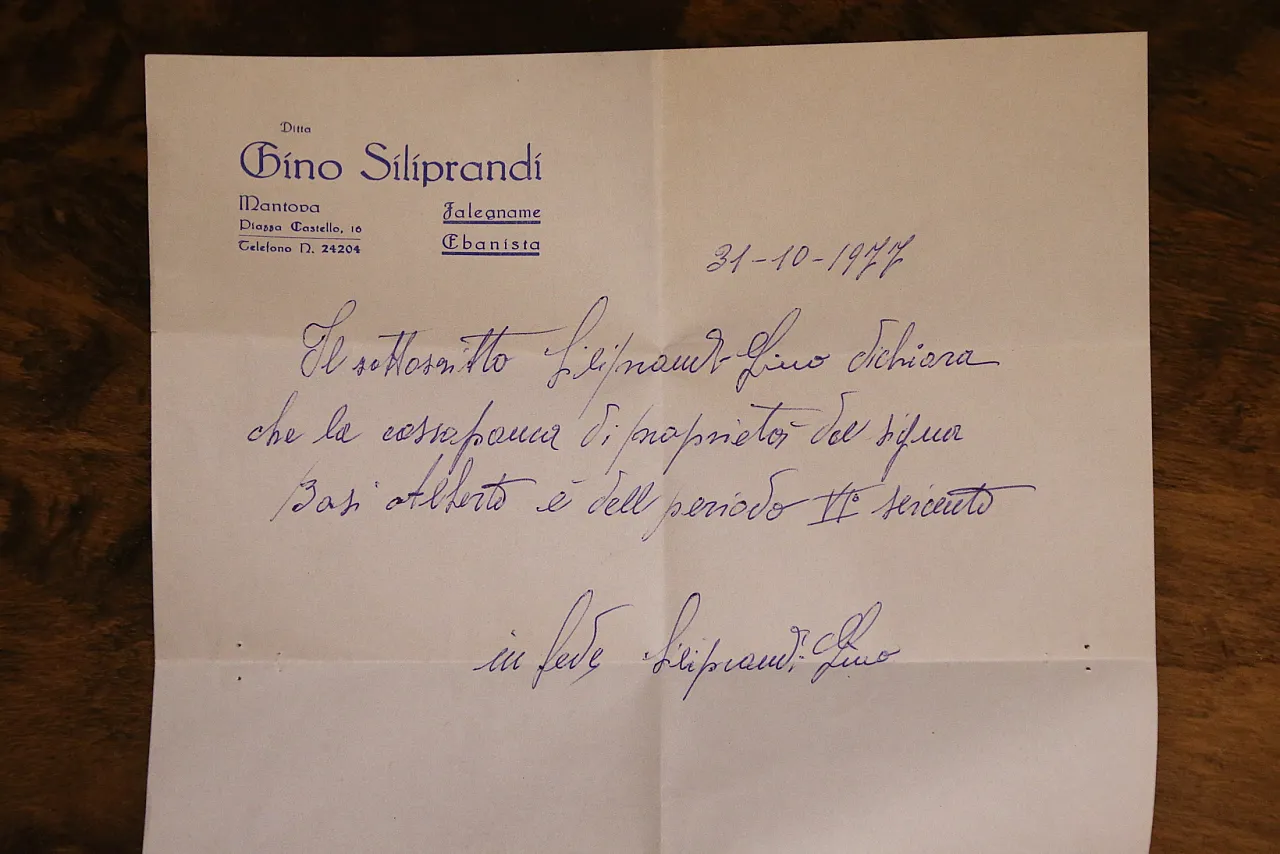 Ditta
Gino Siliprandi
Mantova
Piazza Castello, 16
Telefono N. 24204
Falegname
Ebanista
31-10-1977
Il sottoscritto Siliprandi Gino dichiara
che la cassapanca di proprietà del signor
Basi Alberto è dell periodo VI° seicento
in fede Siliprandi Gino